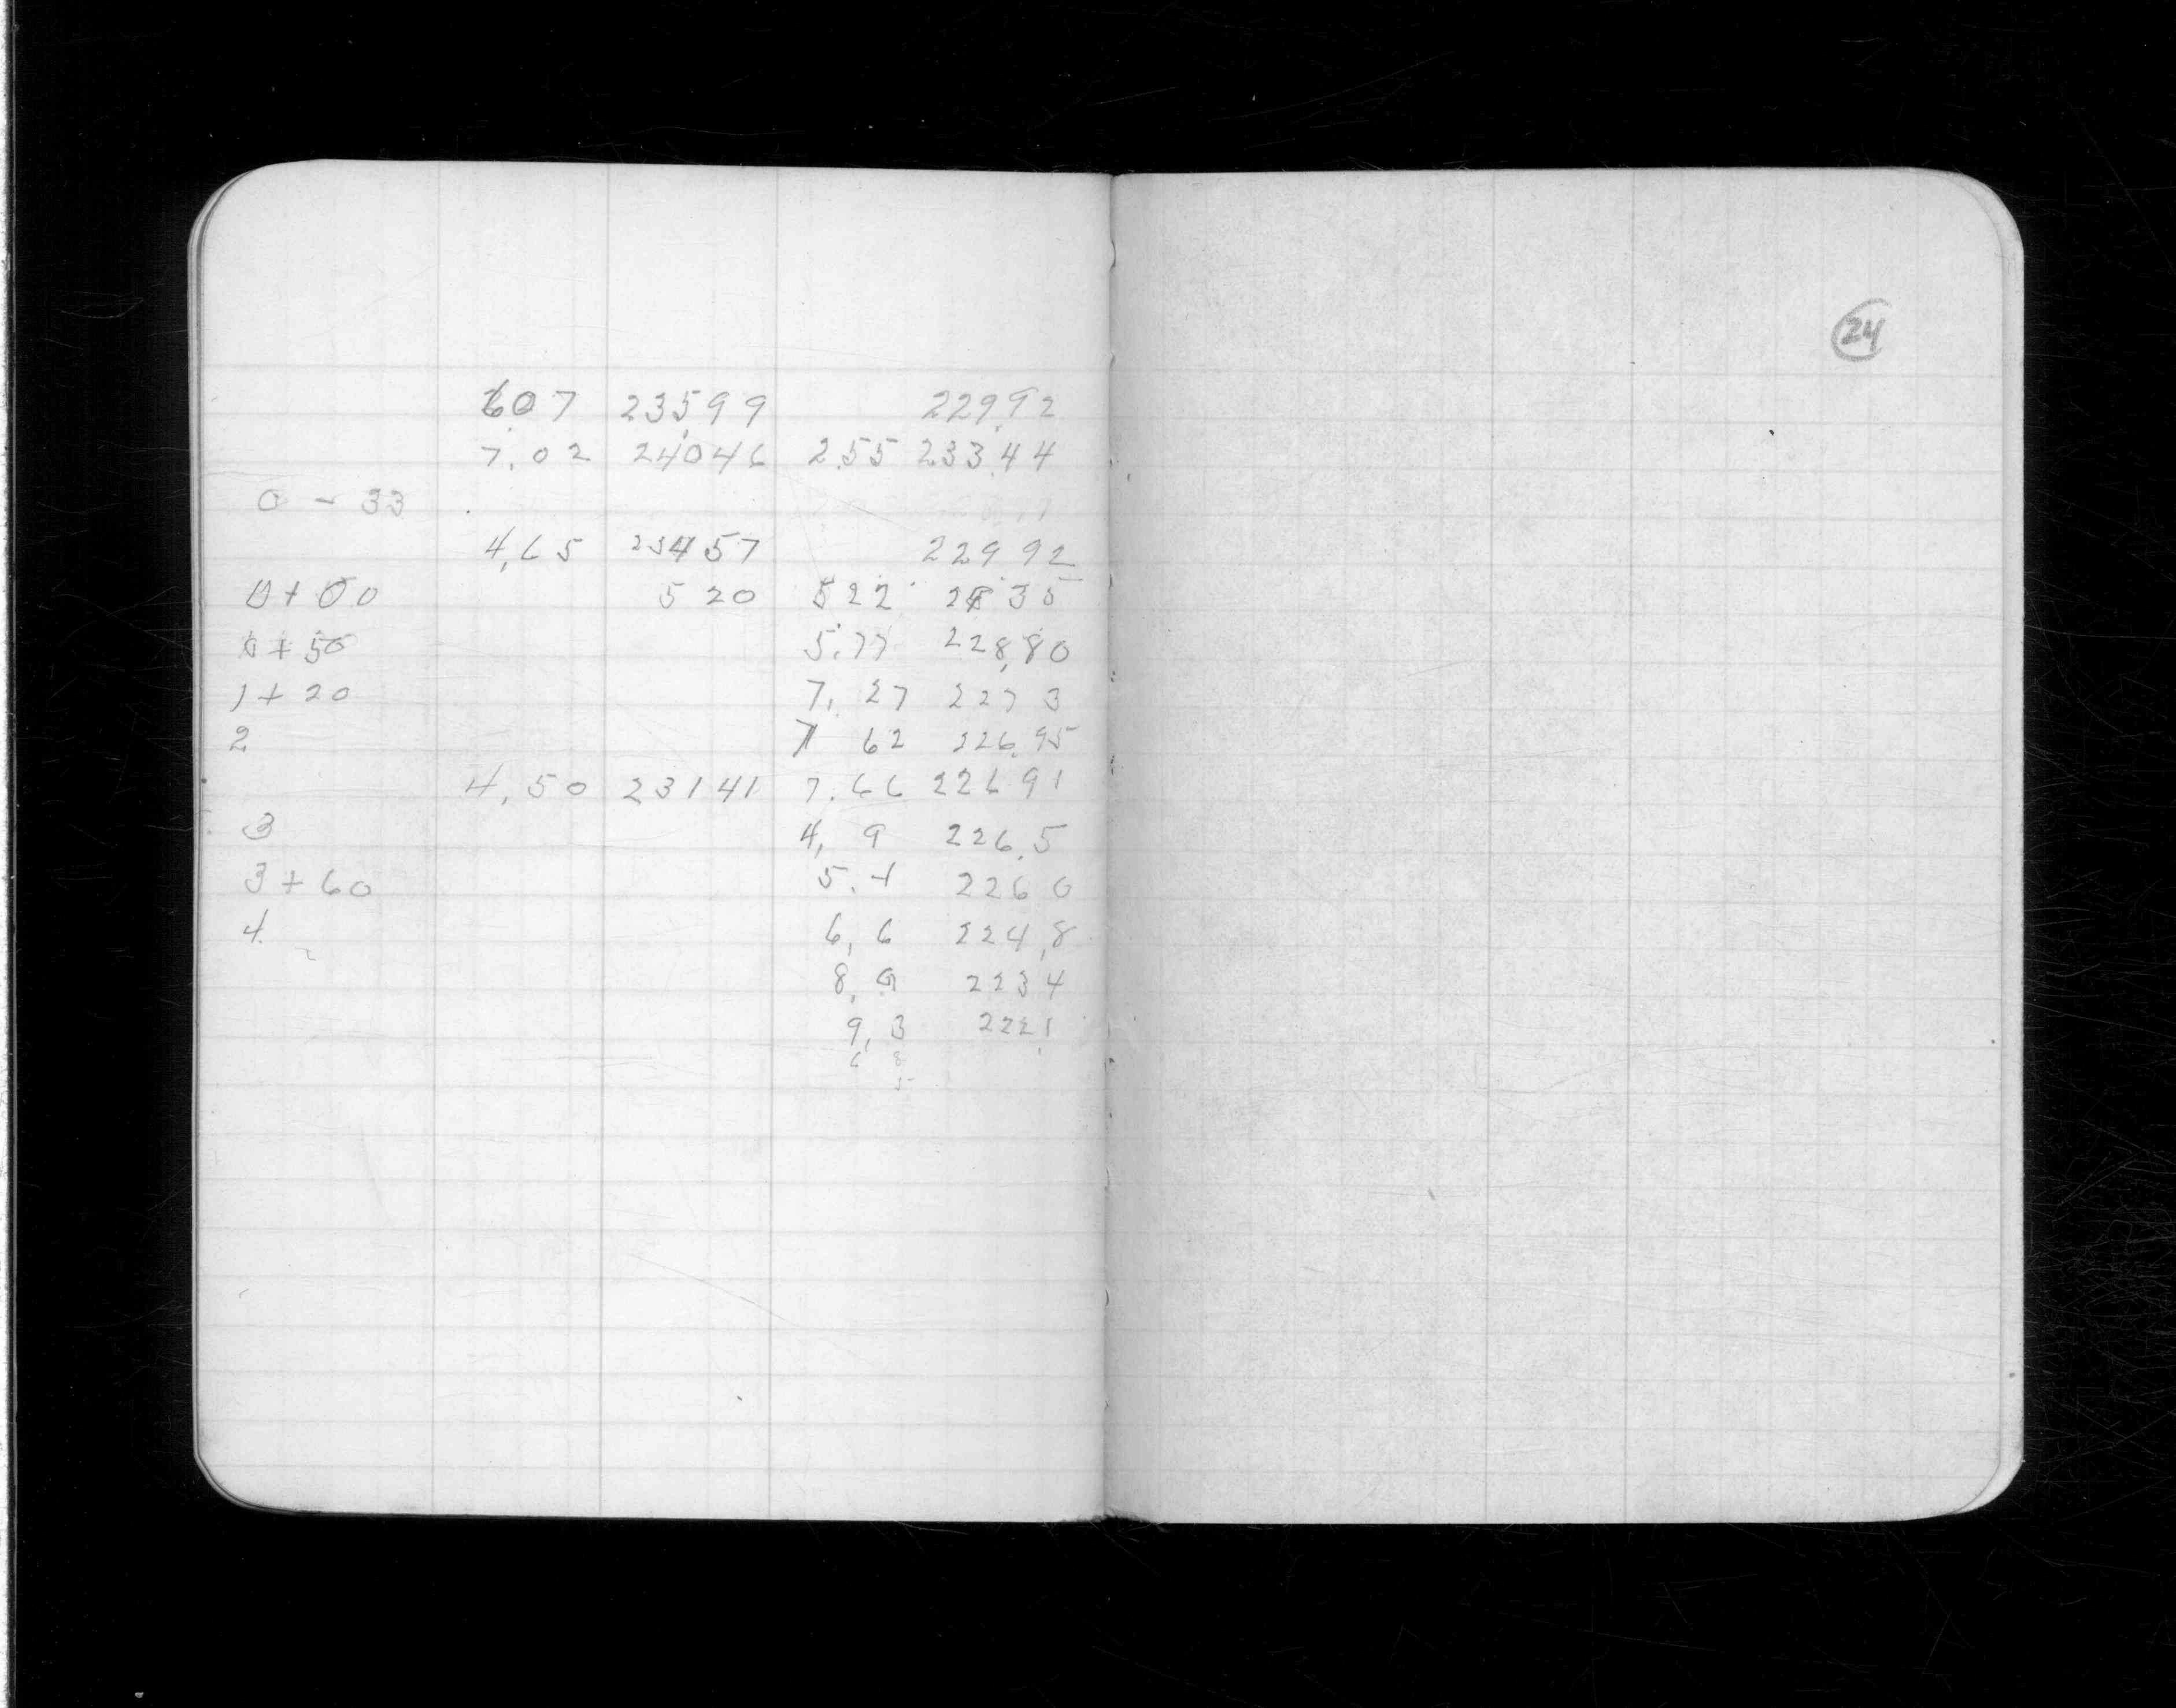 607 23599 229.92
7.02 24046 2.55 233.44
0 - 33
4.65 23457 22992
0+00 520 522 35
0+50 5.77 228.80
1+20 7.27 227 3
2 7 62 226.95
4.50 23141 7.66 22691
3 4.9 226.5
3+60 5.4 226 0
4 6.6 224.8
8.0 223 4
9.3 222.1
6 8
5
24